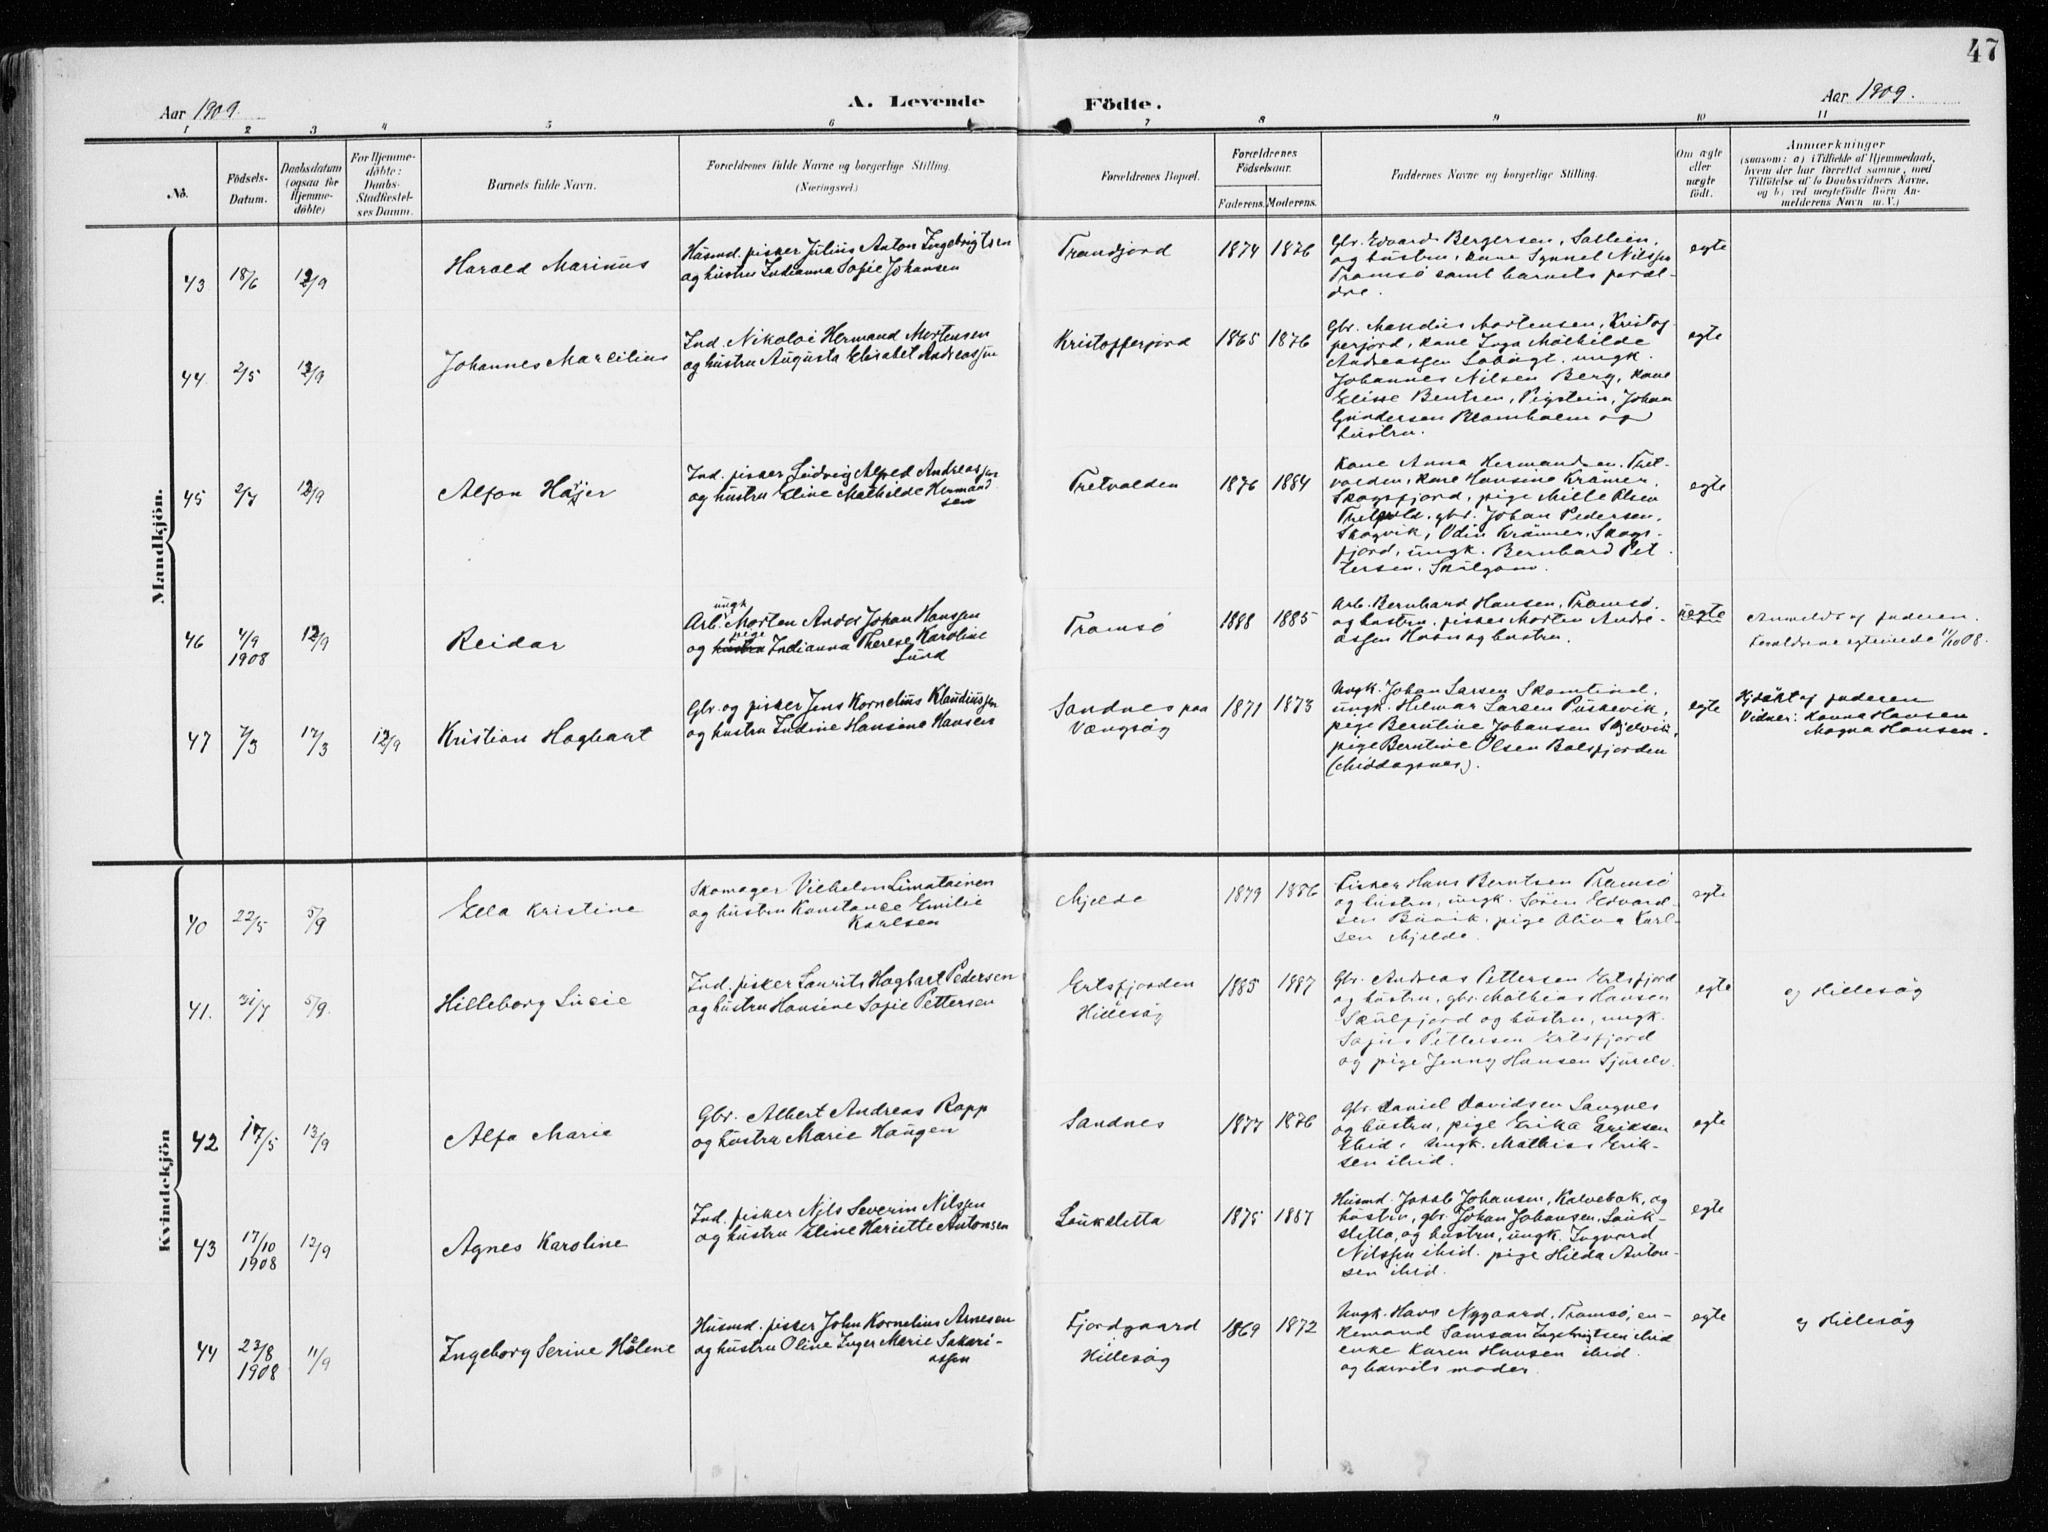 47
Aar 1909.
A. Levende Födte.
Aar 1909.
1 2 3 4 5 6 7 8 9 10 11
No.
Födsels-
Datum.
Daabsdatum
(ogsaa for
Hjemme-
döbte)
For Hjemme-
döbte:
Daabs-
Stadfæstel-
ses Datum.
Barnets fulde Navn.
Forældrenes fulde Navne og borgerlige Stilling.
(Næringsvei.)
Forældrenes Bopæl.
Forældrenes
Födselsaar.
Faderens. Moderens.
Faddernes Navne og borgerlige Stilling.
Om ægte
eller
uægte
födt.
Anmærkninger
(saasom: a) i Tilfælde af Hjemmedaab,
hvem der har forrettet samme, med
Tilföielse af to Daabsvidners Navne,
og b) ved uegtefödte Börn An-
melderens Navn m. V.)
Mandkjön.
43 18/6 12/9
Harald Marinus
Husmd. fisker Julius Anton Ingebrigtsen
og hustru Indianna Sofie Johansen
1874 1876
Gbr. Edvard Bergersen,
og hustru, kone Synnel Nilssen
Tromsö samt barnets foræl-
dre.
egte
44 2/5 12/9
Johannes Marcilius
Ind. Nikolai Hermand Mortensen
og hustru Augusta Elisabet Andreassen
Kristofferjord
1865 1876
Gbr. Mandius Mortensen, Kristof
ferjord, kone Inga Mathilde
Andreassen ungk.
Johannes Nilsen Berg, kone
Elisse Bentsen, Johan
Gundersen Blomholm og
hustru.
egte
45 2/7 12/9
Alfon
Ind. fisker Ludvig Alfred Andreassen
og hustru Eline Mathilde Hermand
sen
Tretvolden
1876 1884
Kone Anna Hermandsen, Tret-
volden, kone Hansine Kræmer,
Skogsfjord, pige Mille Olsen
gbr. Johan Pedersen,
Skogvik, Odin Kræmer, Skogs-
fjord, ungk. Bernhard Pet
tersen,
egte
46 4/9
1908 12/9
Reidar
ungk
Arb. Morten Ander Johan Hanssen
pige
og hustru Indianna Therese Karoline
Lund
Tromsö
1888 1885
Arb. Bernhard Hansen, Tromsö,
og hustru. fisker Morten Andre-
assen Havn og hustru.
uegte
Anmeldt af faderen.
Forældrene egteviede 11/10 08.
47 7/3 17/3 12/9
Kristian Hagbart
Gbr. og fisker Jens Kornelius Klaudiussen
og hustru Indine Hansine Hansen
Sandnes paa
Vængsög
1871 1873
Ungk. Johan Larsen Skamtind,
ungk. Hilmar Larsen
pige Berntine Johansen
pige Berntine Olsen Balsfjorden
(Middagsnes).
egte
Hjdöbt af faderen
Vidner: Hansen
Magna Hansen.
Kvindekjön
40 22/5 5/9
Ella Kristine
Skomager Vilhelm Limatainen
og hustru Konstance Emilie
Karlsen
Mjelde
1879 1886
Fisker Hans Berntsen Tromsö
og hustru, ungk. Sören Edvard-
sen Buvik, pige Oliva Karl-
sen Mjelde.
egte
41. 31/7 5/9.
Hilleborg Lucie
Ind. fisker Laurits Hagbart Pedersen
og hustru Hansine Sofie Pettersen
Ertsfjorden
Hillesög
1885 1887
Gbr. Andreas Pettersen Ertsfjord
og hustru, gbr. Mathias Hansen
Skulfjord og hustru, ungk.
Sofus Pettersen Ertsfjord
og pige Jenny Hansen Sjurelv.
egte
af Hillesög
42 17/5 13/9
Alfa Marie
Gbr. Albert Andreas Rapp
og hustru Marie Haugen
Sandnes
1877 1876
Gbr. Daniel Davidsen Langnes
og hustru, pige Erika Eriksen
Ibid, ungk. Mathias Erik-
sen ibid.
egte
43 17/10
1908 12/9
Agnes Karoline
Ind. fisker Nils Severin Nilssen
og hustru Eline Hariette Antonsen
Laukslitta
1875 1887
Husmd. Jakob Johansen, Kalvebak, og
hustru, gbr. Johan Johansen, Lauk-
slitta, og hustru, ungk. Ingvard
Nilssen ibid. pige Hilda Anton-
sen ibid.
egte
44 23/8
1908 11/9
Ingeborg Serine Hälene
Husmd. fisker John Kornelius Arnesen
og hustru Oline Inger Marie Sakari-
assen
Fjordgaard
Hillesög
1869 1872
Ungk. Hans Nygaard, Tromsö, en-
kemand Samson Ingebrigtsen ibid
enke Karen Hansen ibid.
og barnets moder.
egte
af Hillesög